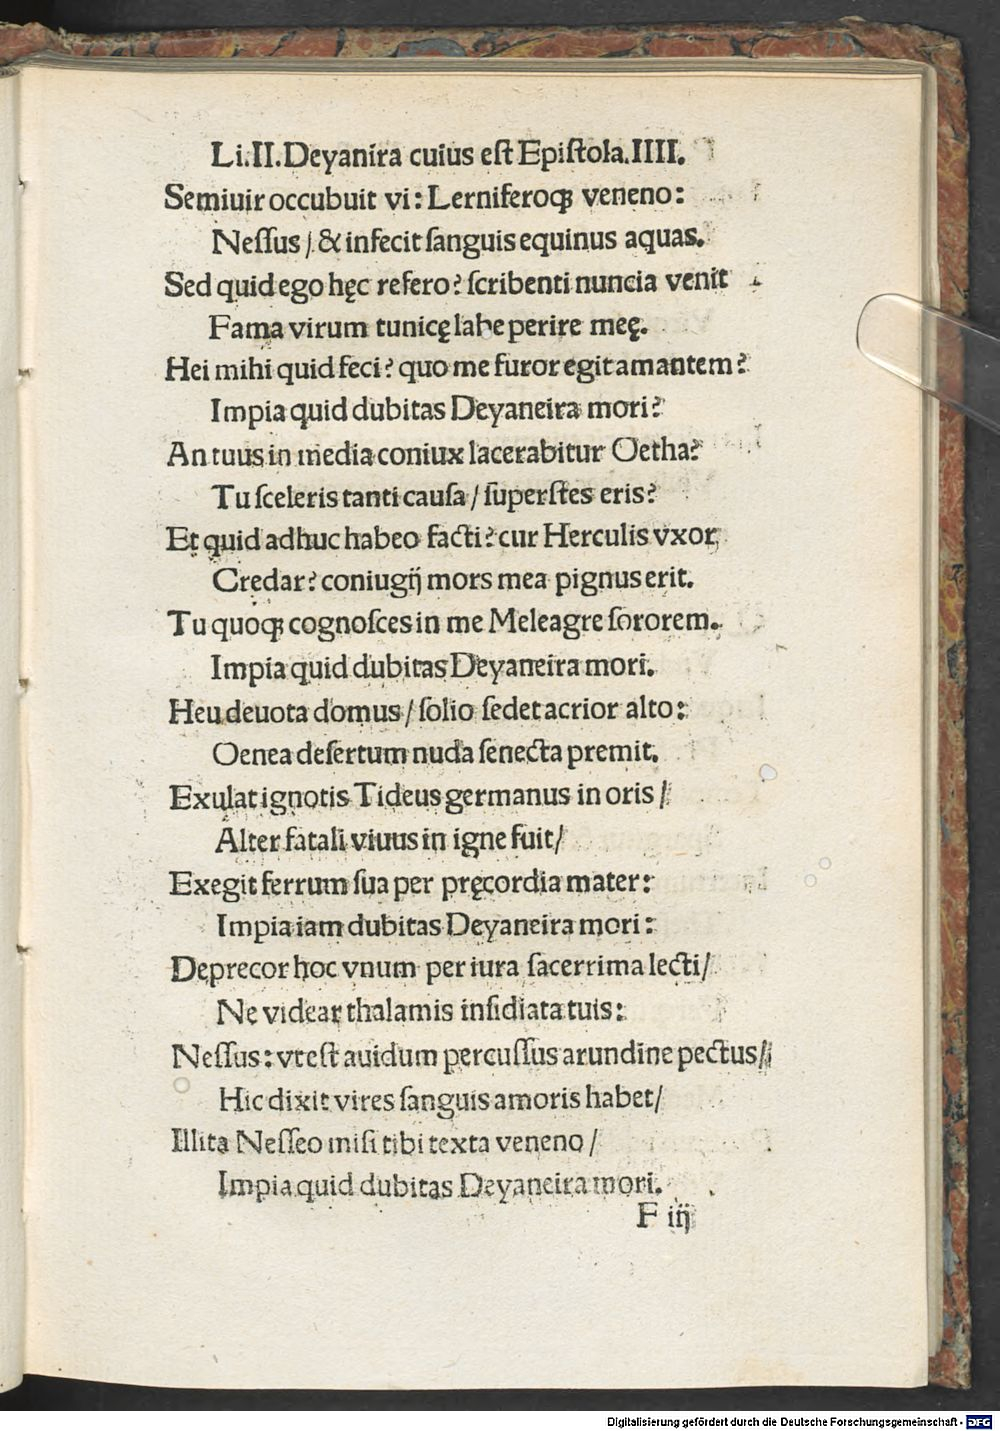 Li.II.Deyanira cuius eſt Epiſtola.IIII.
Semiuir occubuit vi: Lerniferoqꝫ veneno:
Neſſus / & infecit ſanguis equinus aquas.
Sed quid ego hęc refero? ſcribenti nuncia venit
Fama virum tunicę labe perire meę.
Hei mihi quid feci? quo me furor egit amantem?
Impia quid dubitas Deyaneira mori?
An tuus in media coniux lacerabitur Oetha?
Tu ſceleris tanti cauſa / ſuperſtes eris?
Et quid adhuc habeo facti? cur Herculis vxor
Credar? coniugij mors mea pignus erit.
Tu quoqꝫ cognoſces in me Meleagre ſororem.
Impia quid dubitas Deyaneira mori.
Heu deuota domus / ſolio ſedet acrior alto:
Oenea deſertum nuda ſenecta premit.
Exulat ignotis Tideus germanus in oris /
Alter fatali viuus in igne fuit/
Exegit ferrum ſua per pręcordia mater:
Impia iam dubitas Deyaneira mori:
Deprecor hoc vnum per iura ſacerrima lecti/
Ne videar thalamis inſidiata tuis:
Neſſus: vt eſt auidum percuſſus arundine pectus/
Hic dixit vires ſanguis amoris habet/
Illita Neſſeo miſi tibi texta veneno /
Impia quid dubitas Deyaneira mori.
F iij
Digitalisierung gefördert durch die Deutsche Forschungsgemeinschaft - DFG